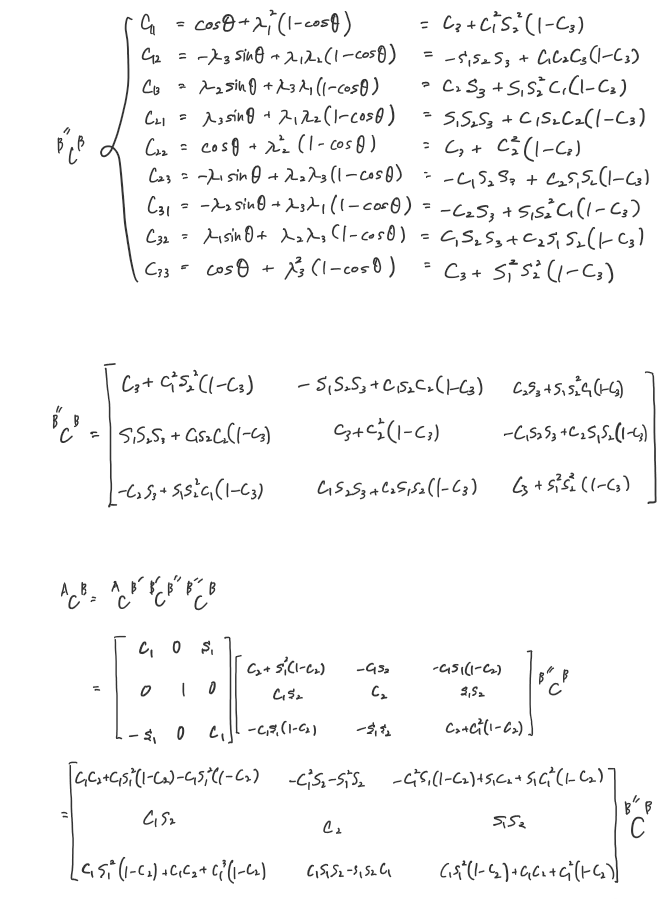 C₁₁ = cosθ + λ₁²(1-cosθ) = C₃ + C₁²S₂²(1-C₃)
C₁₂ = -λ₃ sinθ + λ₁λ₂(1-cosθ) = -S₁S₂S₃ + C₁C₂C₃(1-C₃)
C₁₃ = λ₂ sinθ + λ₃λ₁(1-cosθ) = C₂S₃ + S₁S₂²C₁(1-C₃)
C₂₁ = λ₃ sinθ + λ₁λ₂(1-cosθ) = S₁S₂S₃ + C₁S₂C₂(1-C₃)
ᴮ″Cᴮ C₂₂ = cosθ + λ₂²(1-cosθ) = C₃ + C₂²(1-C₃)
C₂₃ = -λ₁ sinθ + λ₂λ₃(1-cosθ) = -C₁S₂S₃ + C₂S₁S₂(1-C₃)
C₃₁ = -λ₂ sinθ + λ₃λ₁(1-cosθ) = -C₂S₃ + S₁S₂²C₁(1-C₃)
C₃₂ = λ₁ sinθ + λ₂λ₃(1-cosθ) = C₁S₂S₃ + C₂S₁S₂(1-C₃)
C₃₃ = cosθ + λ₃²(1-cosθ) = C₃ + S₁²S₂²(1-C₃)
C₃ + C₁²S₂²(1-C₃) -S₁S₂S₃ + C₁S₂C₂(1-C₃) C₂S₃ + S₁S₂²C₁(1-C₃)
ᴮ″Cᴮ = S₁S₂S₃ + C₁S₂C₂(1-C₃) C₃ + C₂²(1-C₃) -C₁S₂S₃ + C₂S₁S₂(1-C₃)
-C₂S₃ + S₁S₂²C₁(1-C₃) C₁S₂S₃ + C₂S₁S₂(1-C₃) C₃ + S₁²S₂²(1-C₃)
ᴬCᴮ = ᴬCᴮ′ ᴮ′Cᴮ″ ᴮ″Cᴮ
C₁ 0 S₁ C₂ + S₁²(1-C₂) -C₁S₂ -C₁S₁(1-C₂)
= 0 1 0 C₁S₂ C₂ S₁S₂ ᴮ″Cᴮ
-S₁ 0 C₁ -C₁S₁(1-C₂) -S₁S₂ C₂ + C₁²(1-C₂)
C₁C₂ + C₁S₁²(1-C₂) - C₁S₁²(1-C₂) -C₁²S₂ - S₁²S₂ -C₁²S₁(1-C₂) + S₁C₂ + S₁C₁²(1-C₂)
= C₁S₂ C₂ S₁S₂ ᴮ″Cᴮ
C₁S₁²(1-C₂) + C₁C₂ + C₁³(1-C₂) C₁S₁S₂ - S₁S₂C₁ C₁S₁²(1-C₂) + C₁C₂ + C₁²(1-C₂)